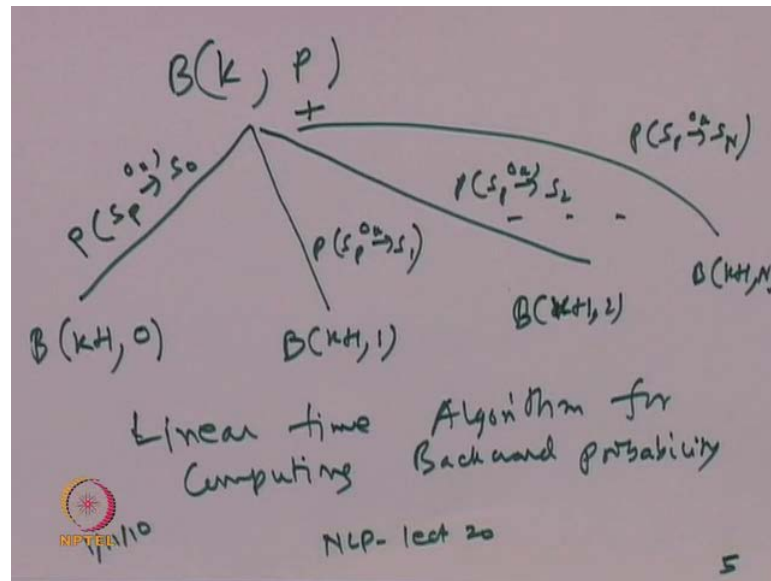 B(K, P)
+
P(Sp →^Ok S0)
P(Sp →^Ok S1)
P(Sp →^Ok S2)
P(Sp →^Ok SN)
- - -
B(K+1, 0)
B(K+1, 1)
B(K+1, 2)
B(K+1, N
Linear time Algorithm for
Computing Backward probability
NPTEL
NLP- lect 20
5